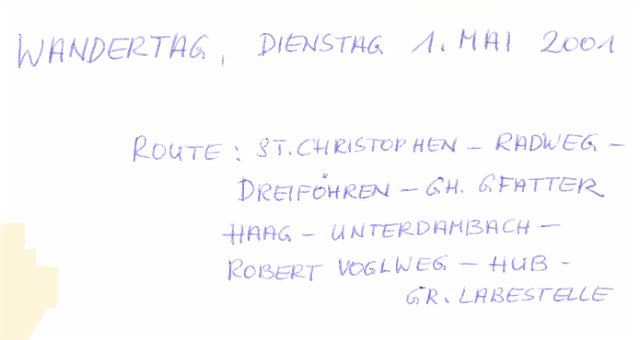 WANDERTAG, DIENSTAG 1. MAI 2001
ROUTE: ST. CHRISTOPHEN – RADWEG –
DREIFÖHREN – GH. GFATTER
HAAG – UNTERDAMBACH –
ROBERT VOGLWEG – HUB –
GR. LABESTELLE